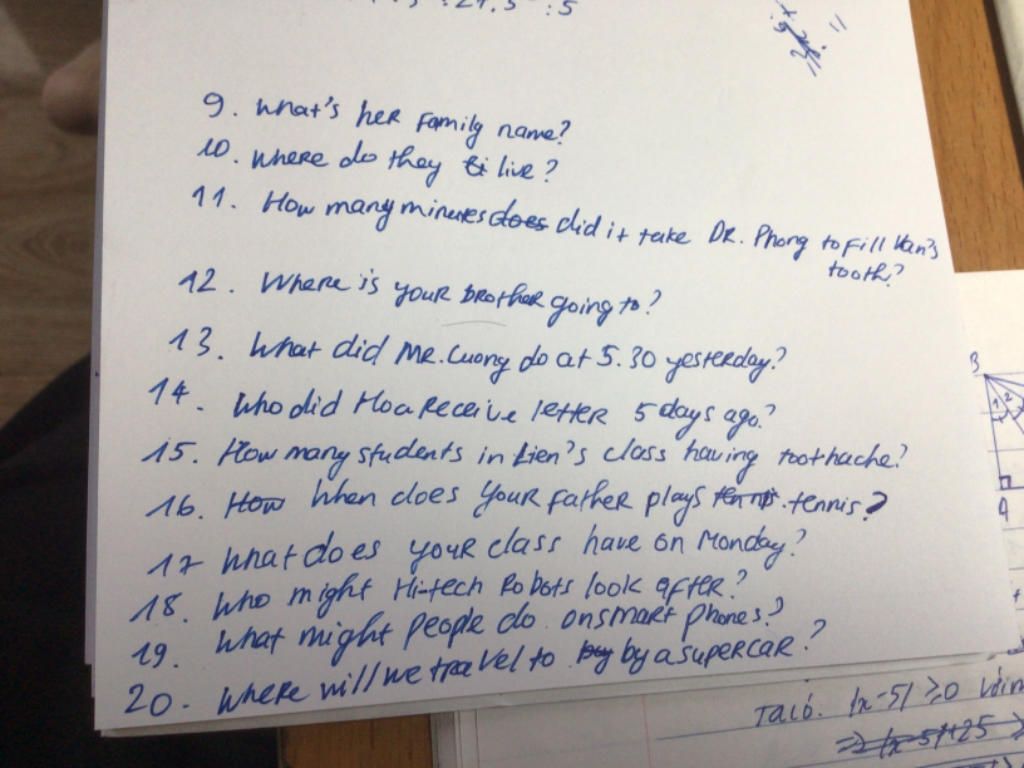 : 5
9. What's her family name?
10. Where do they live?
11. How many minutes does did it take Dr. Phong to fill Van's
tooth?
12. Where is your brother going to?
13. What did Mr. Cuong do at 5.30 yesterday?
14. Who did Hoa receive letter 5 days ago?
15. How many students in Lien's class having toothache?
16. How When does your father plays tennis. tennis?
17 What does your class have on Monday?
18. Who might Hi-tech Robots look after?
19. What might people do on smart phones?
20. Where will we travel to by by a supercar?
B
1 2
A
Ta có: |x-5| ≥0 với
=> 2|x-5|+25